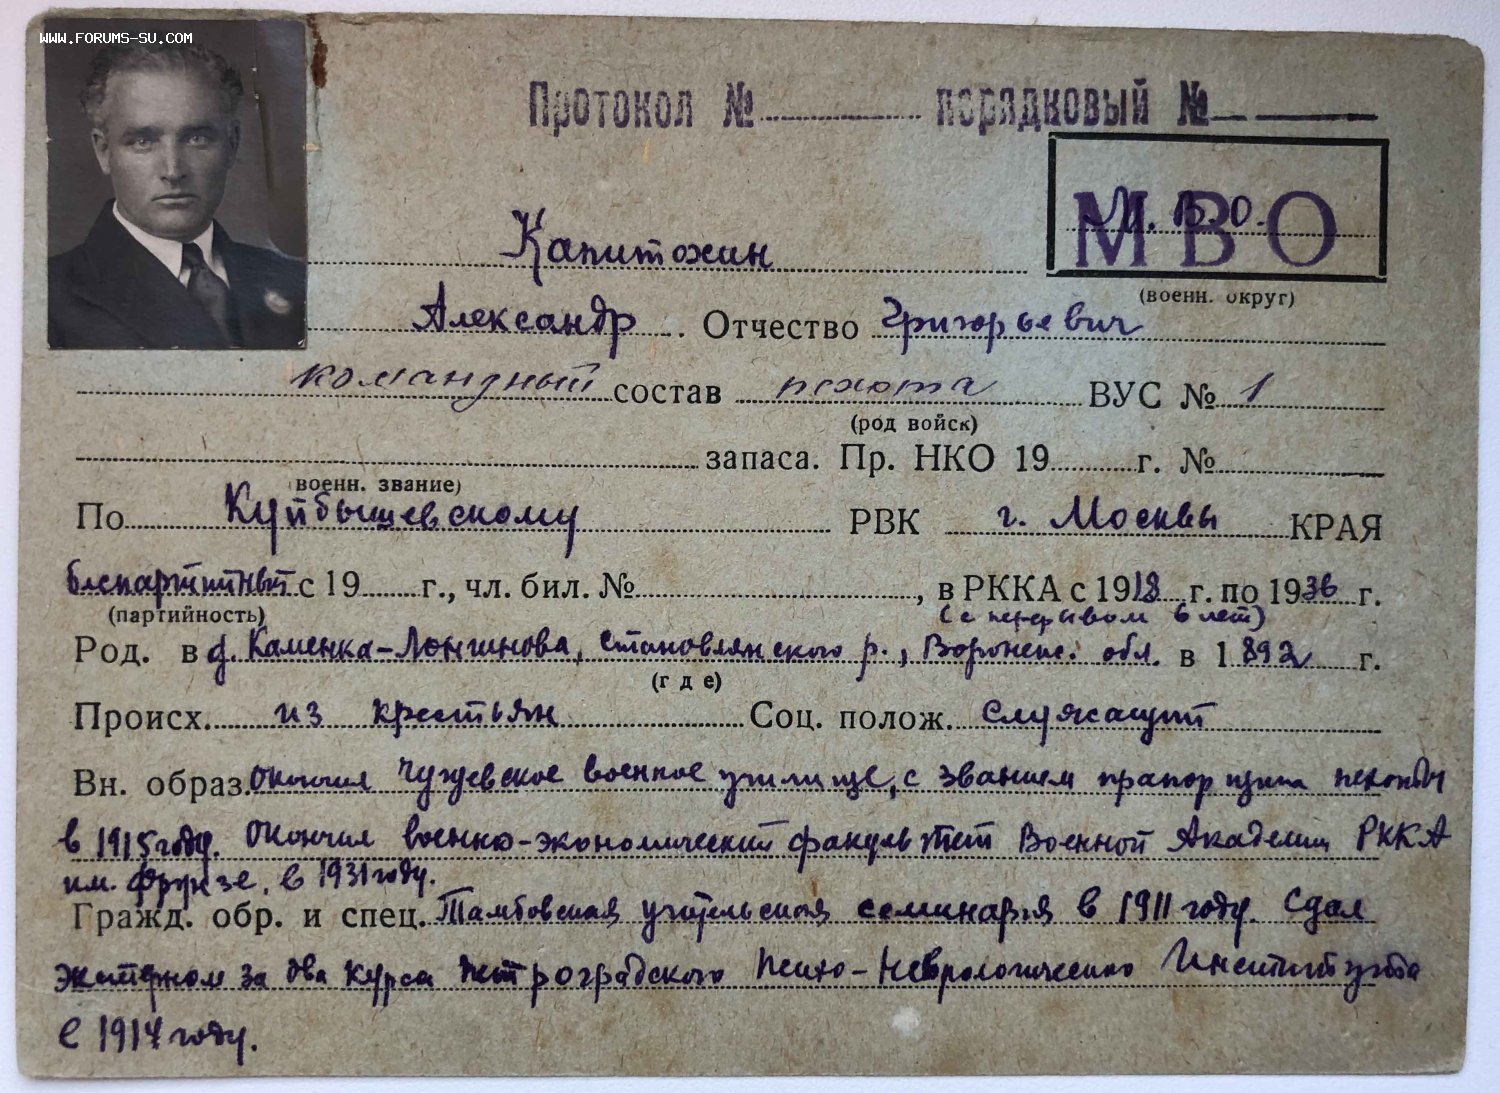 WWW.FORUMS-SU.COM
Протокол № порядковый №
М. В. О.
МВО
(военн. округ)
Капитохин
Александр. Отчество Григорьевич
командный состав пехота ВУС № 1
(род войск)
запаса. Пр. НКО 19 г. №
военн. звание)
По Куйбышевскому РВК г. Москвы КРАЯ
беспартийный с 19 г., чл. бил. №, в РККА с 1918 г. по 1936 г.
(партийность) (с перерывом 6 лет)
Род. в д. Каменка-Лонгинова, Становлянского р., Воронеж. обл. в 1892 г.
(где)
Происх. из крестьян Соц. полож. служащий
Вн. образ. окончил Чугуевское военное училище, с званием прапорщика пехоты
в 1915 году. окончил военно-экономический факультет Военной Академии РККА
им. Фрунзе, в 1931 году.
Гражд. обр. и спец. Тамбовская учительская семинария в 1911 году. Сдал
экстерном за два курса Петроградского Психо-Неврологического Института
в 1917 году.